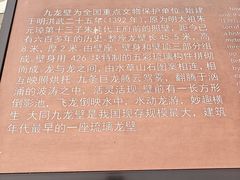 九龙壁为全国重点文物保护单位，始建
于明洪武二十五年（1392年），原为明太祖朱
元璋第十三子朱桂代王府前的照壁，距今已
有六百多年的历史。整座龙壁长45.5米，高
8米，厚2米，由壁座、壁身和壁顶三部分组
成。壁身用426块特制的五彩琉璃构件拼砌
而成。龙与龙之间，由水草山石图案相连，相
互映照烘托。九条巨龙腾云驾雾，翻腾于汹
涌的波涛之中，活灵活现。壁前有一长方形
倒影池，飞龙倒映水中，水动龙游，妙趣横
生。大同九龙壁是我国现存规模最大、建筑
年代最早的一座琉璃龙壁